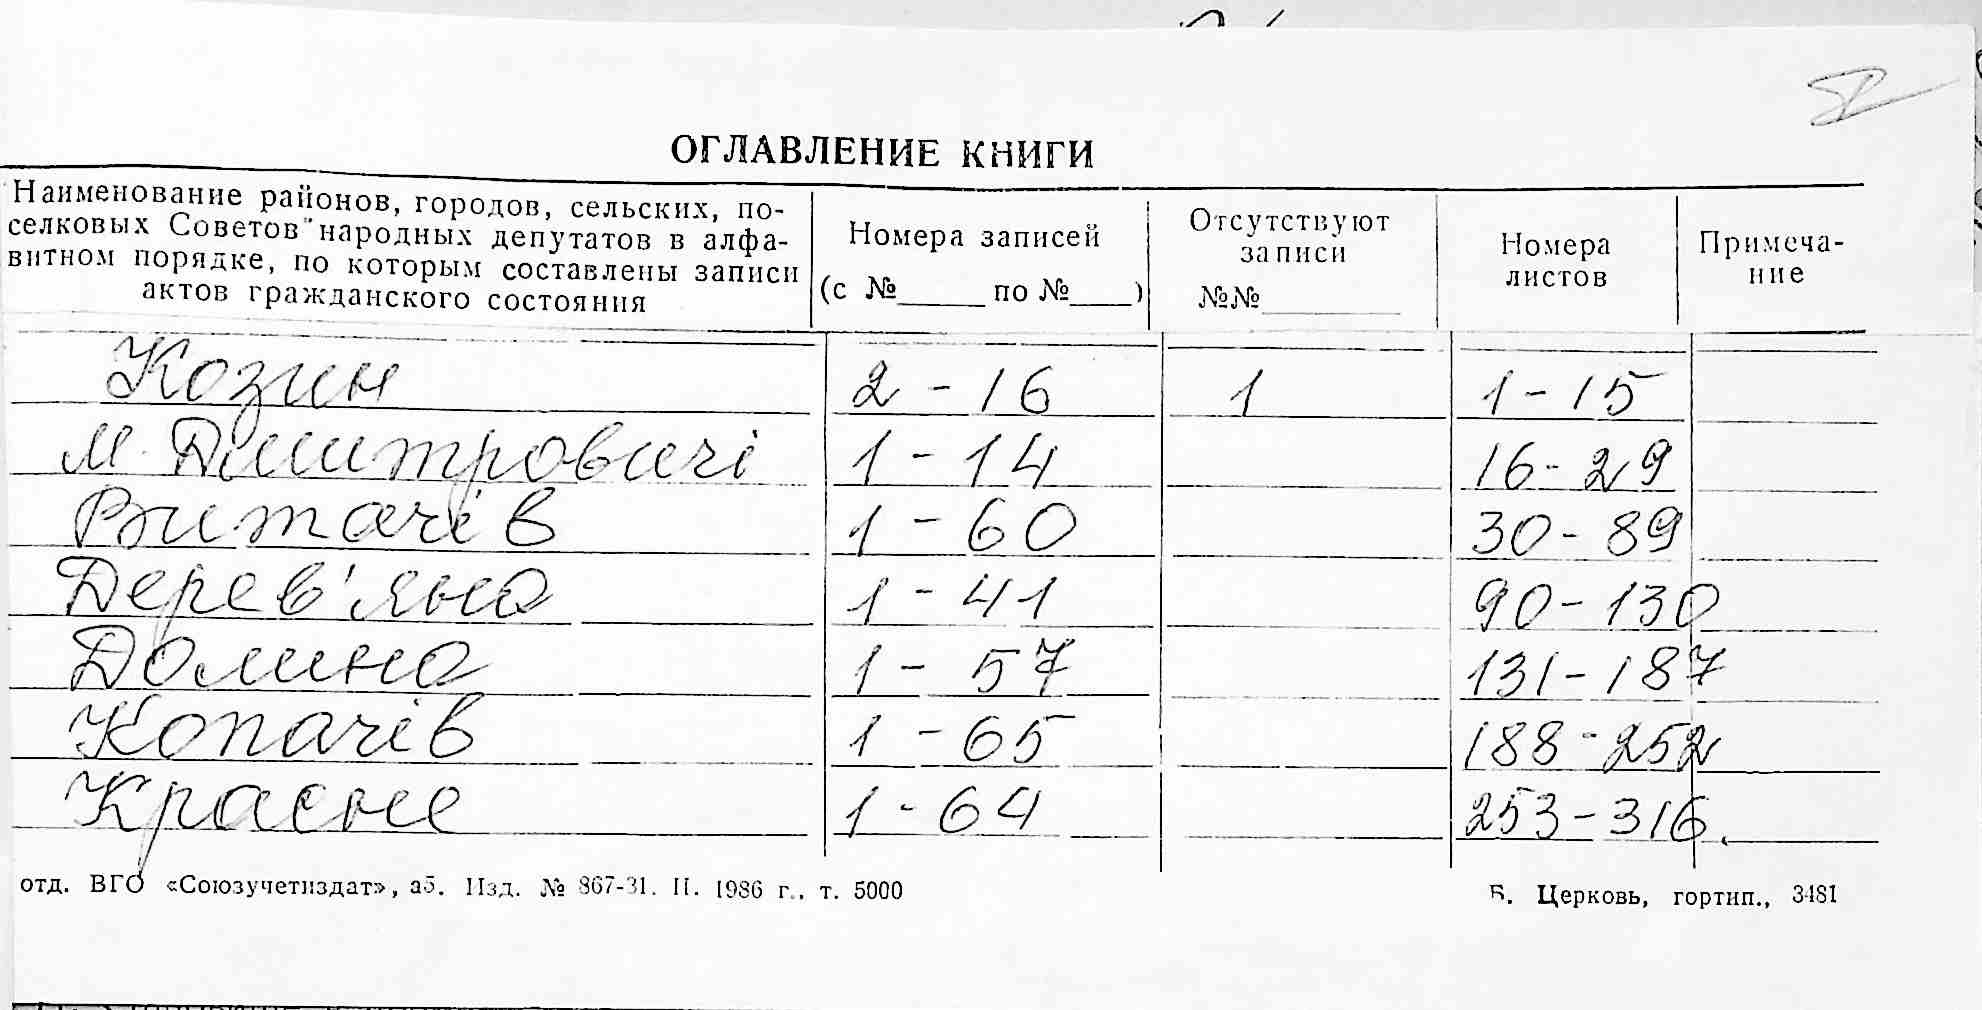 ОГЛАВЛЕНИЕ КНИГИ
Наименование районов, городов, сельских, по-
селковых Советов народных депутатов в алфа-
витном порядке, по которым составлены записи
актов гражданского состояния
Номера записей
(с №____ по №____)
Отсутствуют
записи
№№____
Номера
листов
Примеча-
ние
Козин 2 - 16 1 1 - 15
М. Дмитровичі 1 - 14 16 - 29
Витачів 1 - 60 30 - 89
Дерев'яна 1 - 41 90 - 130
Долина 1 - 57 131 - 187
Копачів 1 - 65 188 - 252
Красне 1 - 64 253 - 316.
отд. ВГО «Союзучетиздат», аб. Изд. № 867-31. II. 1986 г., т. 5000
Б. Церковь, гортип., 3481